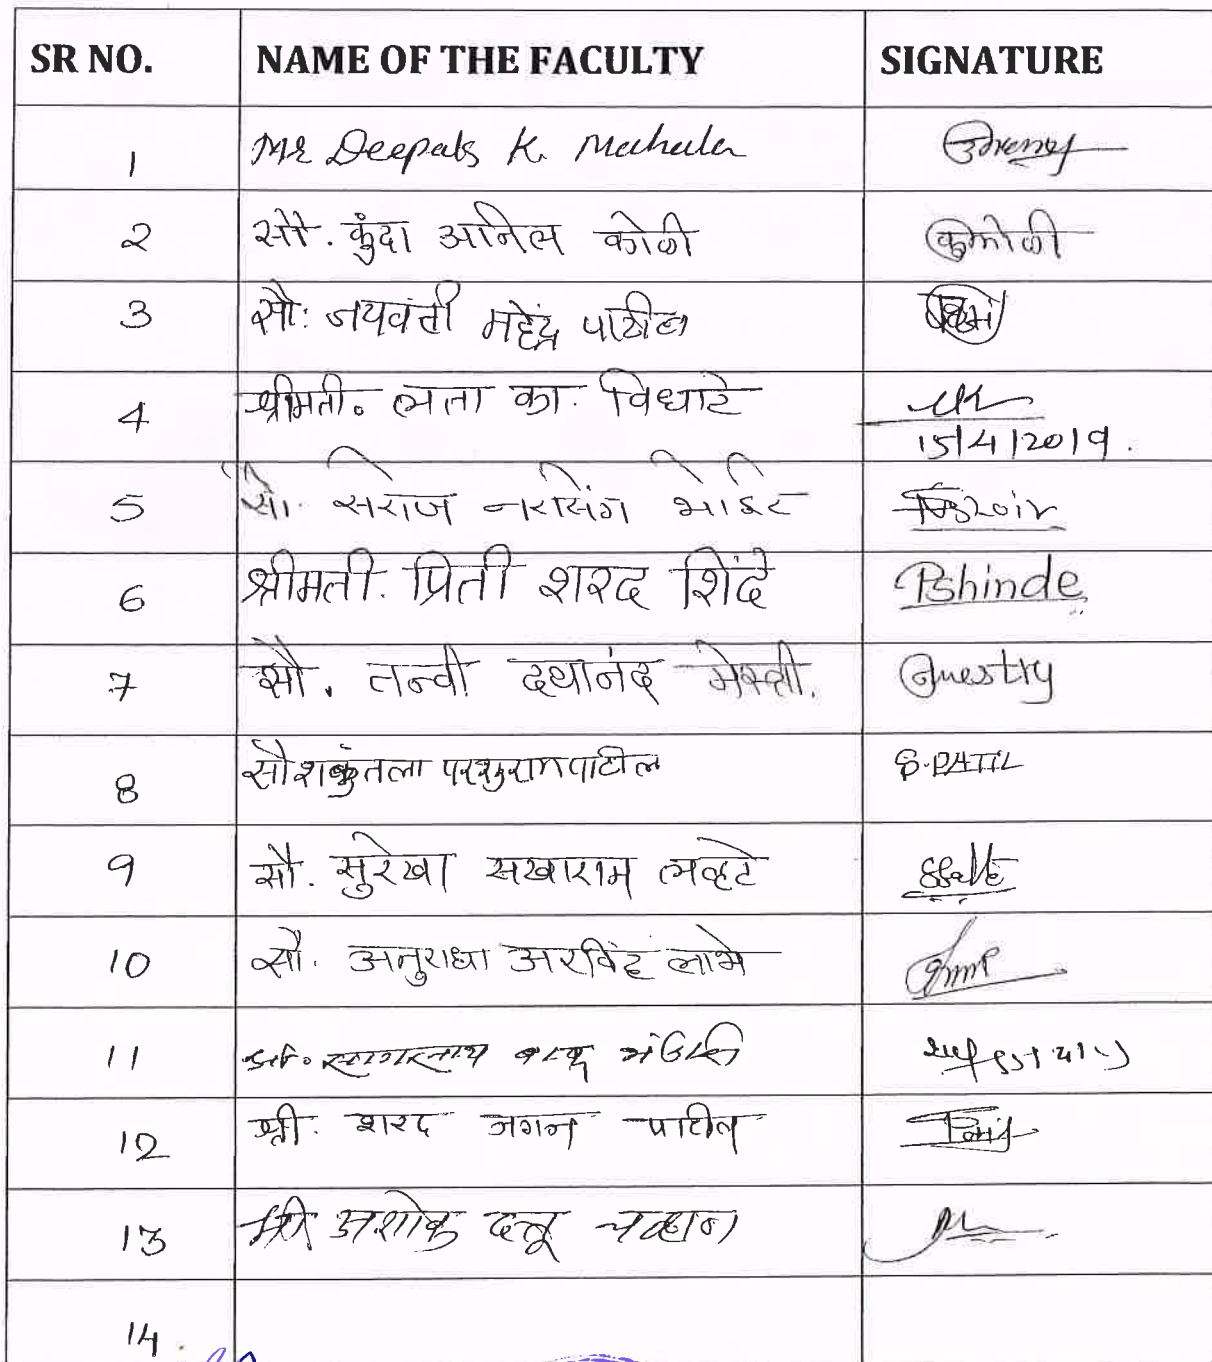 SR NO. NAME OF THE FACULTY SIGNATURE
1 Mr Deepak K.
2 सौ. कुंदा अनिल कोळी कुकोळी
3 सौ. जयवंती महेंद्र पाटील
4 श्रीमती. लता का. विधाटे
15/4/2019.
5 सौ. सरोज नरसिंग भोईर
6 श्रीमती. प्रिती शरद शिंदे PShinde
7 सौ. तन्वी दयानंद मेस्त्री. mestry
8 सौ शकुंतला परशुराम पाटील S.PATIL
9 सौ. सुरेखा सखाराम लव्हटे
10 सौ. अनुराधा अरविंद लाभे
11
12 श्री. शरद जगन पाटील
13 श्री अशोक दत्तू चव्हाण
14